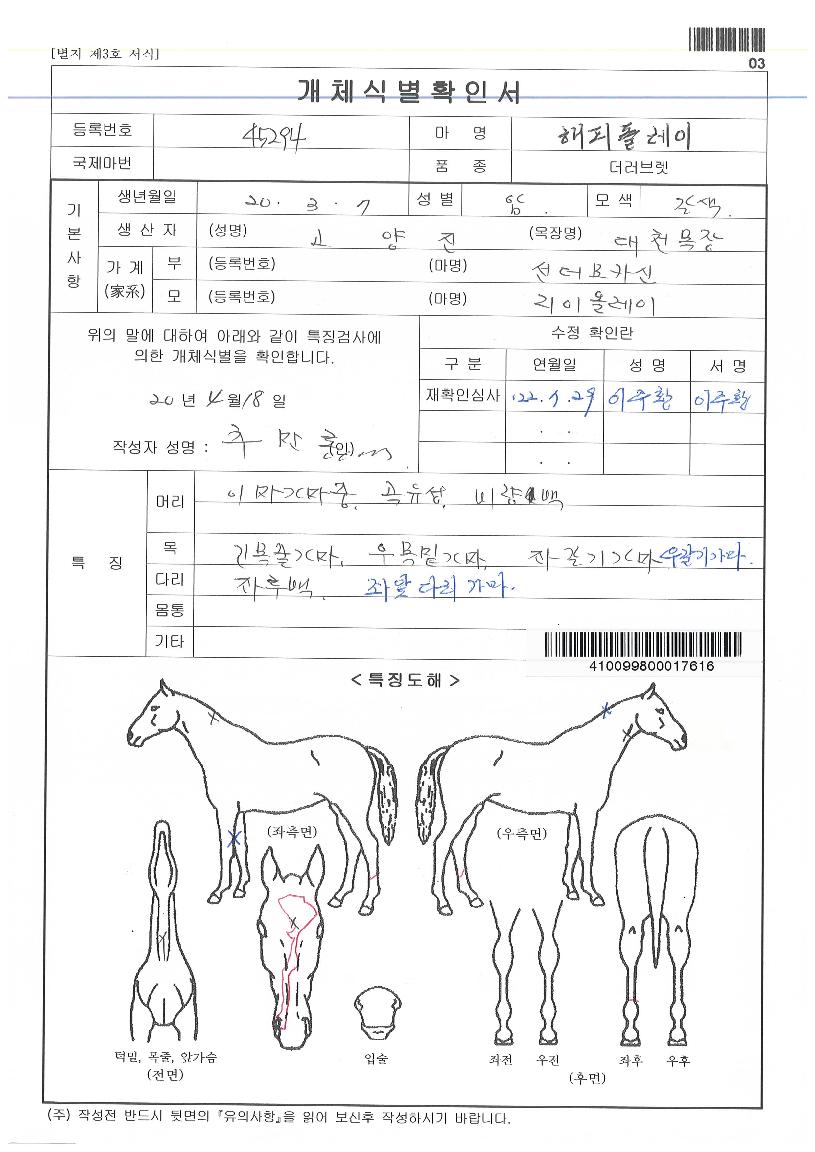 [별지 제3호 서식]
03
개체식별확인서
등록번호 45294 마 명 해피플레이
국제마번 품 종 더러브렛
기본사항
생년월일 20. 3. 7 성별 암. 모색 갈색.
생 산 자 (성명) 고 양 진 (목장명) 대천목장
가계(家系) 부 (등록번호) (마명) 선더모카신
모 (등록번호) (마명) 리이플레이
위의 말에 대하여 아래와 같이 특징검사에
의한 개체식별을 확인합니다.
20년 4월 18일
작성자 성명 : (인)
수정 확인란
구분 연월일 성명 서명
재확인심사 '22. 1. 29 이주환 이주환
. .
. .
특 징
머리 이마가마중, 곡유성, 비량백
목 긴목줄가마, 우목밑가마, 좌갈기가마 우갈기가마.
다리 좌후백. 좌앞다리가마.
몸통
기타
410099800017616
< 특징도해 >
(좌측면) (우측면)
턱밑, 목줄, 앞가슴
(전면)
입술
좌전 우전 좌후 우후
(후면)
(주) 작성전 반드시 뒷면의 『유의사항』을 읽어 보신후 작성하시기 바랍니다.